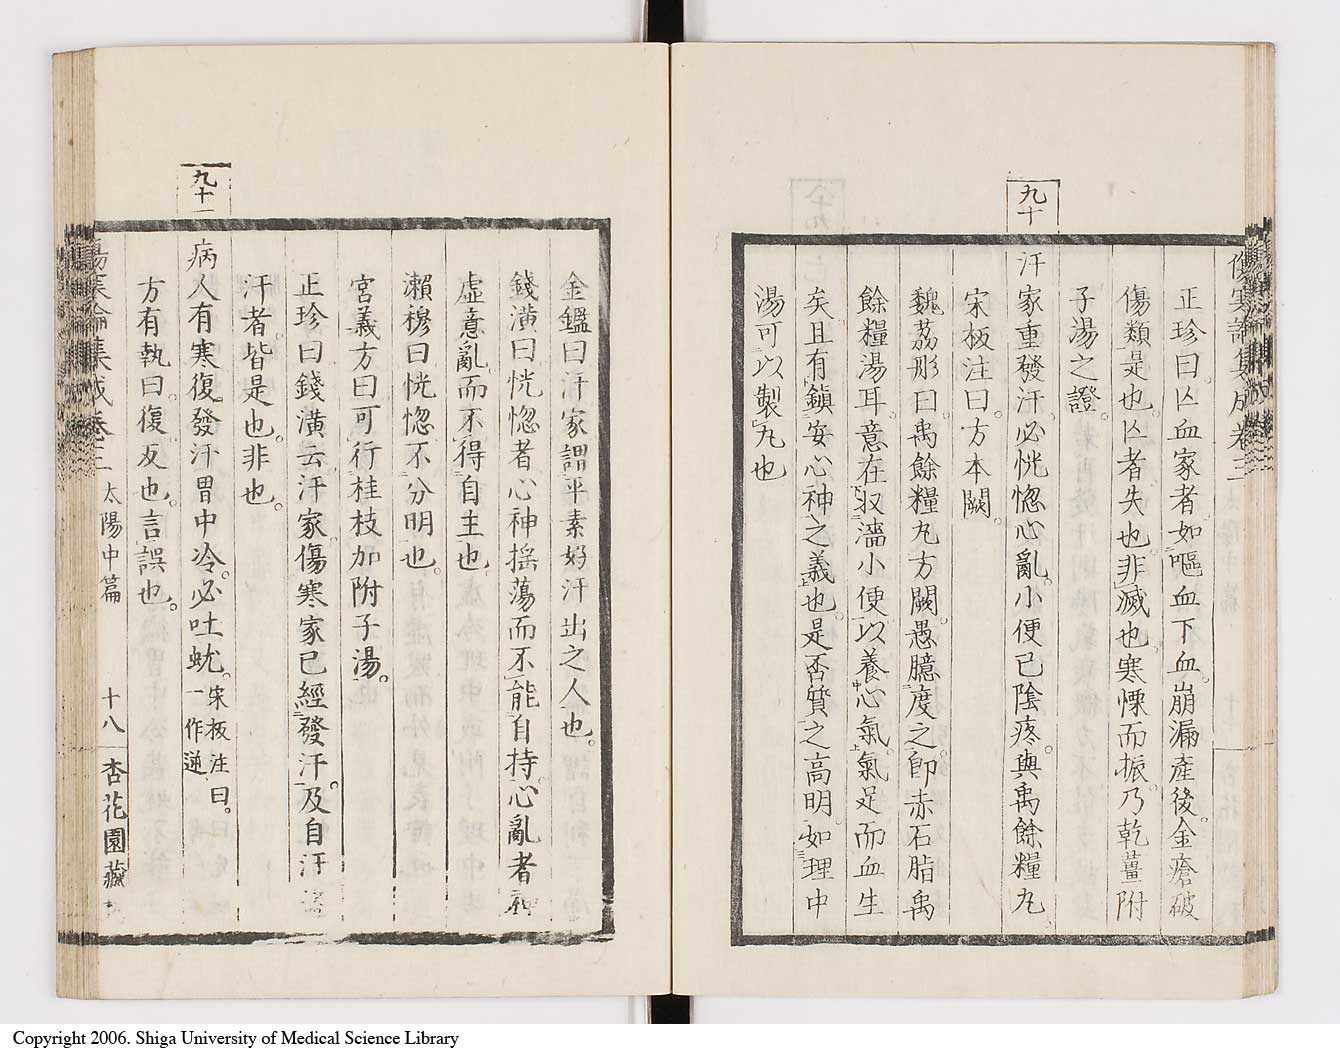 傷寒論集成卷三
正珍曰。亡血家者如嘔血下血崩漏產後金瘡破
傷類是也。亡者失也。非滅也。寒慄而振。乃乾薑附
子湯之證。
九十
汗家重發汗。必恍惚心亂。小便已陰疼。與禹餘糧丸。
宋板注曰。方本闕。
魏荔彤曰。禹餘糧丸方闕。愚臆度之。卽赤石脂禹
餘糧湯耳。意在收濇小便。以養心氣。氣足而血生
矣。且有鎭安心神之義也。是否質之高明。如理中
湯可以製丸也
金鑑曰。汗家謂平素好汗出之人也。
錢潢曰。恍惚者心神搖蕩而不能自持。心亂者神
虛意亂。而不得自主也
瀨穆曰恍惚不分明也。
宮義方曰可行桂枝加附子湯。
正珍曰錢潢云汗家傷寒家已經發汗。及自汗盜
汗者。皆是也。非也。
九十一
病人有寒復發汗胃中冷。必吐蚘。宋板注曰。一作逆
方有執曰。復反也。言誤也。
太陽中篇
十八
杏花園藏
Copyright 2006. Shiga University of Medical Science Library